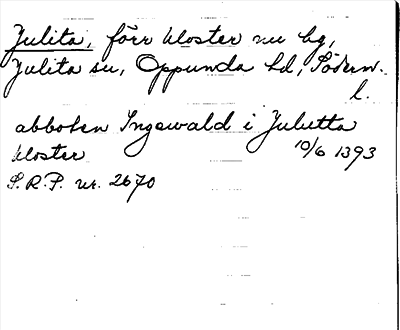 Julita, förr kloster nu hg,
Julita sn, Oppunda hd, Söderm.
l.
abboten Ingewald i Juletta
kloster 10/6 1393
S.R.P. nr. 2670